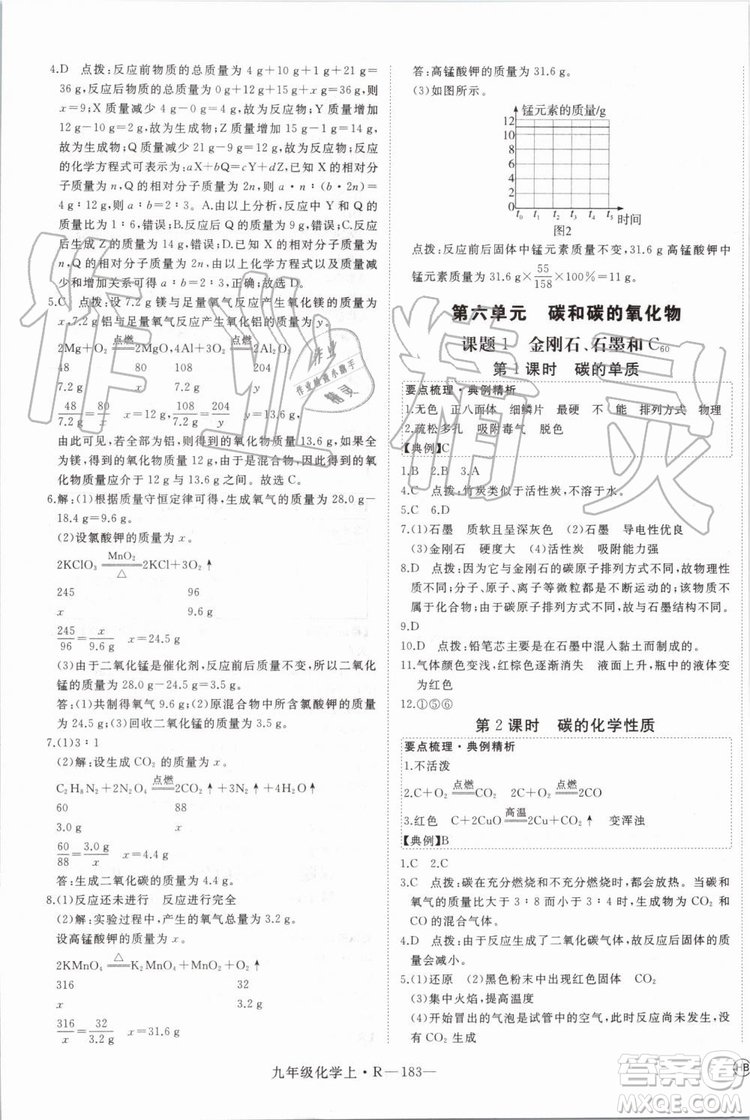 4.D 点拨:反应前物质的总质量为 4 g+10 g+1 g+21 g=
36 g,反应后物质的总质量为 0 g+12 g+15 g+x=36 g,则
x=9;X 质量减少 4 g,故为反应物;Y 质量增加
12 g-10 g=2 g,故为生成物;Z 质量增加
15 g-1 g=14 g,故为生成物;Q 质量减少
21 g-9 g=12 g,故为反应物;
的化学方程式可表示为:aX+bQ=cY+dZ,
子质量为 n,则根据题意可得 a·n:(b·2n)=
4 g:12 g,a:b=2:3。
为 1:6,错误;B.反应后 Q
应后生成 Z 的质量为 14 g,错误;D.
减少和增加,可得出以上化学方程式中,X、Q 的相对分
子质量之比为 1:2,正确;故选 D。
5.C 点拨:设 7.2 g 镁与足量氧气反应产生氧化镁的质量
为 x,7.2 g 铝与足量氧气反应产生氧化铝的质量为 y。
2Mg+O₂ 点燃 2MgO 4Al+3O₂ 点燃 2Al₂O₃
48 80 108 204
7.2 g x 7.2 g y
48/7.2 g=80/x x=12 g 108/7.2 g=204/y y=13.6 g
由此可见,若全部为铝,得到的氧化物质量为 13.6 g,如果全
为镁,得到的氧化物质量为 12 g,由于是混合物,因此得到的氧
化物质量应介于 12 g 与 13.6 g 之间。故选 C。
6.解:(1)根据质量守恒定律可得,生成氧气的质量为 28.0 g-
18.4 g=9.6 g。
(2)设氯酸钾的质量为 x。
2KClO₃ MnO₂ △ 2KCl+3O₂↑
245 96
x 9.6 g
245/96=x/9.6 g x=24.5 g
(3)由于二氧化锰是催化剂,反应前后质量不变,所以二氧化
锰的质量为 28.0 g-24.5 g=3.5 g。
答:(1)共制得氧气 9.6 g;(2)原混合物中所含氯酸钾的质量
为 24.5 g;(3)回收二氧化锰的质量为 3.5 g。
7.(1)3:1
(2)解:设生成 CO₂ 的质量为 x。
C₂H₈N₂+2N₂O₄ 点燃 2CO₂↑+3N₂↑+4H₂O↑
60 88
3.0 g x
60/88=3.0 g/x x=4.4 g
答:生成二氧化碳的质量为 4.4 g。
8.(1)反应还未进行 反应进行完全
(2)解:实验过程中,产生的氧气总质量为 3.2 g。
设高锰酸钾的质量为 x。
2KMnO₄ △ K₂MnO₄+MnO₂+O₂↑
316 32
x 3.2 g
316/x=32/3.2 g x=31.6 g
答:高锰酸钾的质量为 31.6 g。
(3)如图所示。
锰元素的质量/g
12
10
8
6
4
2
0
t₀ t₁ t₂ t₃ t₄ t₅ 时间
图2
点拨:反应前后固体中锰元素质量不变,31.6 g 高锰酸钾中
锰元素质量为 31.6 g×55/158×100%=11 g。
第六单元 碳和碳的氧化物
课题 1 金刚石、石墨和 C₆₀
第 1 课时 碳的单质
要点梳理·典例精析
1.无色 正八面体 细鳞片 最硬 不 能 排列方式 物理
2.疏松多孔 吸附毒气 脱色
【典例】C
1.B 2.B 3.A
4.C 点拨:竹炭类似于活性炭,不溶于水。
5.C 6.D
7.(1)石墨 质软且呈深灰色 (2)石墨 导电性优良
(3)金刚石 硬度大 (4)活性炭 吸附能力强
8.D 点拨:因为它与金刚石的碳原子排列方式不同;因为分
子、原子、离子等微粒都很小;因为碳原子的排列方式不同;
不属于氧化物,属于碳单质。
9.D
10.D 点拨:铅笔芯是在石墨中混入黏土而成的。
11.气体颜色变浅,红棕色逐渐消失 活性炭上升,瓶中的液体变
为红色
12.①⑤⑥
第 2 课时 碳的化学性质
要点梳理·典例精析
1.不活泼
2.C+O₂ 点燃 CO₂ 2C+O₂ 点燃 2CO
3.红色 C+2CuO 高温 2Cu+CO₂↑ 变浑浊
【典例】B
1.C 2.C
3.C 点拨:碳在氧气中充分燃烧和不充分燃烧时,当碳和
氧气的质量比大于 3:8 而小于 3:4 时,生成物为 CO₂
和 CO 的混合气体。
4.D 点拨:由于反应生成了二氧化碳气体,因此固体的质量
会减小。
5.(1)还原 (2)黑色粉末中出现红色固体 CO₂
(3)集中火焰,提高温度
(4)开始时冒出的气泡是试管中的空气,反应还没发生,没
有 CO₂ 生成
九年级化学上·R—183—
作业精灵
作业精灵
作业检查小助手
答案圈